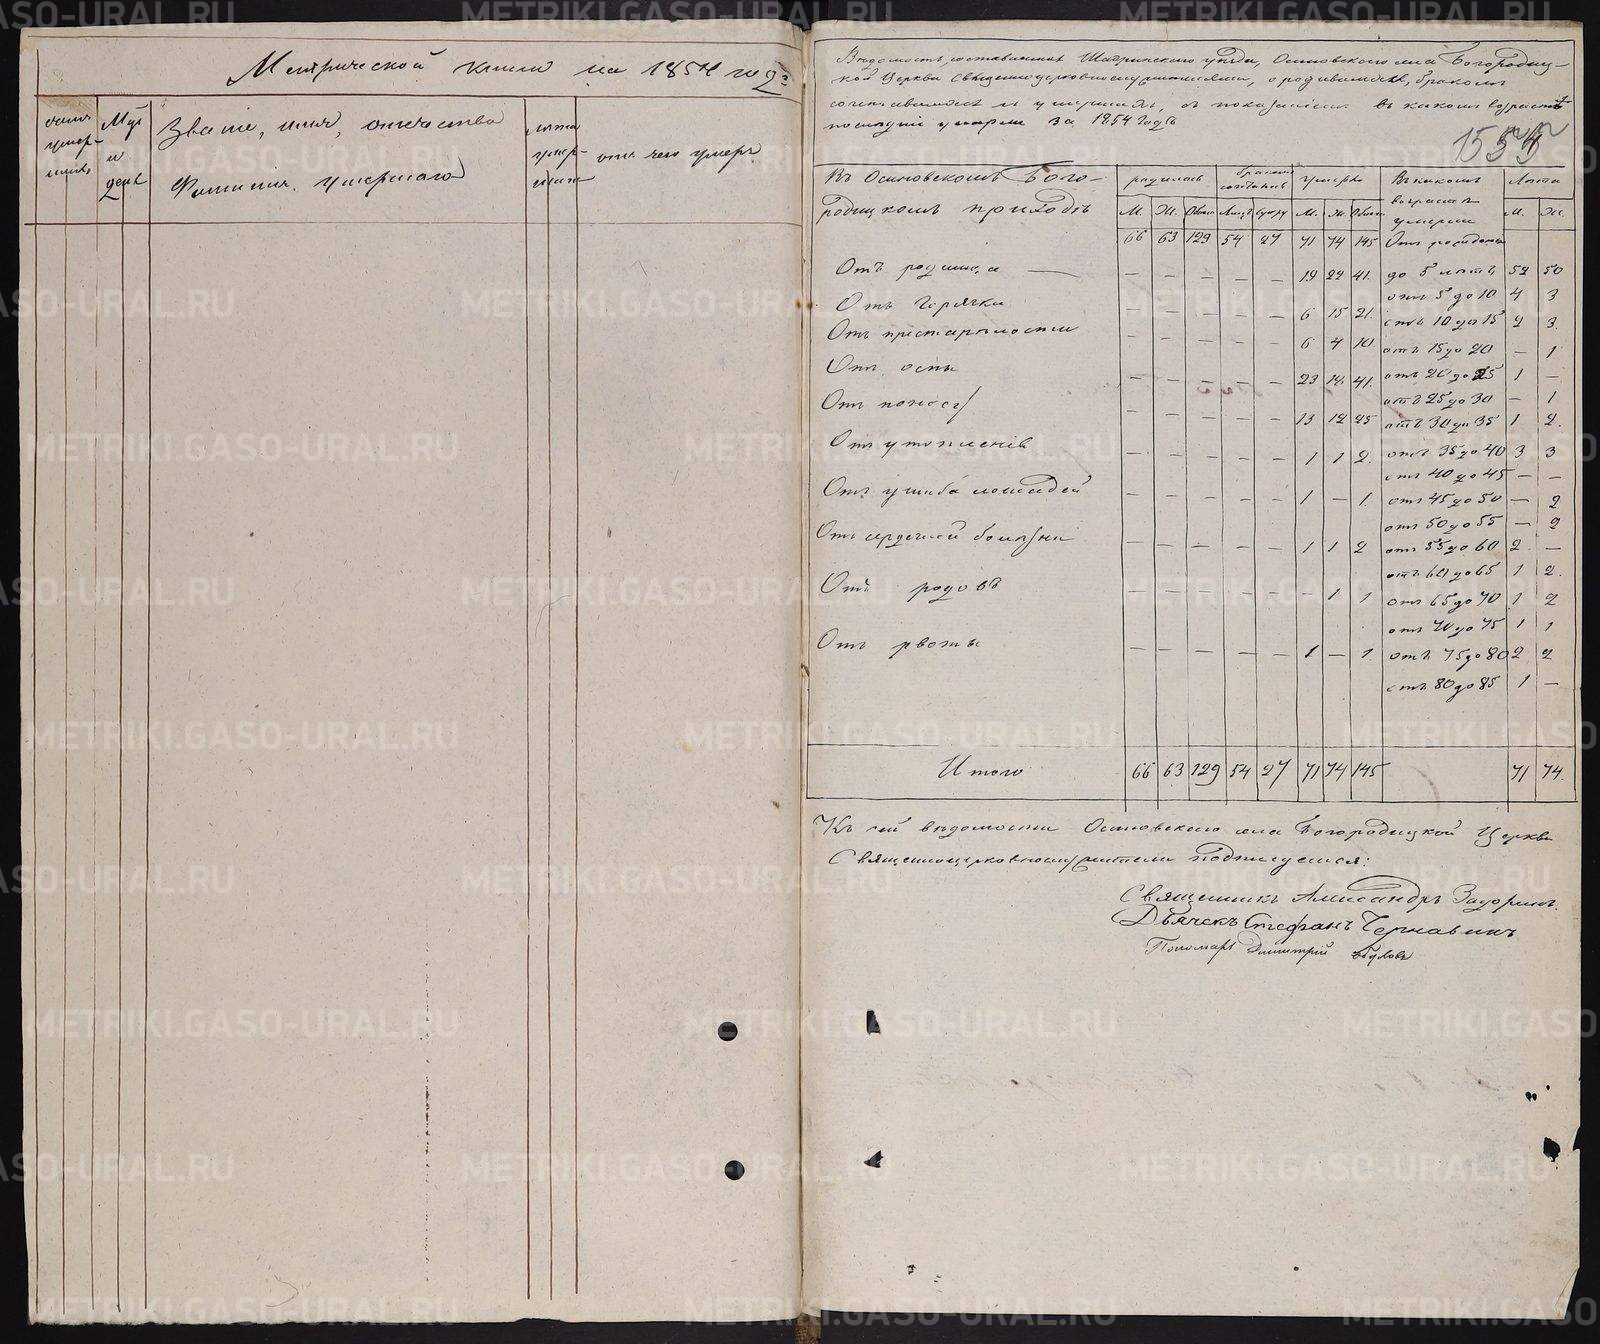 Метрической книги на 1854 годъ
счетъ умер-шихъ
Мѣс. и день
Званіе, имя, отчество
Фамилія умершаго
лѣта умер-шихъ
отъ чего умеръ
Вѣдомость, составленная Шадринскаго уѣзда, Осиновскаго села Богородиц-
кой Церкви Священноцерковнослужителями, о родившихся, бракомъ
сочетавшихся и умершихъ, съ показаніемъ въ какомъ возрастѣ
послѣдніе умерли за 1854 годъ
Въ Осиновскомъ Бого-
родицкомъ приходѣ
родилось браковъ умерло Въ какомъ возрастѣ умерли Лѣта
М. Ж. Обоего М. Ж. Обоего М. Ж.
66 63 129 54 27 71 74 145 Отъ рожденія
Отъ родимца — — — — — 19 22 41. до 5 лѣтъ 52 50
отъ 5 до 10 4 3
Отъ горячки — — — — — 6 15 21. отъ 10 до 15 2 3.
Отъ престарѣлости — — — — — 6 4 10. отъ 15 до 20 — 1
Отъ оспы — — — — — 23 18. 41. отъ 20 до 25 1 —
отъ 25 до 30 — 1
Отъ поноса — — — — — 13 12 25 отъ 30 до 35 1 2.
Отъ утопленія — — — — — 1 1 2. отъ 35 до 40 3 3
отъ 40 до 45 — —
Отъ ушиба лошадей — — — — — 1 — 1. отъ 45 до 50 — 2
отъ 50 до 55 — 2
Отъ сердечной болѣзни — — — — — 1 1 2 отъ 55 до 60 2 —
отъ 60 до 65 1 2.
Отъ родовъ — — — — — — 1 1 отъ 65 до 70 1 2
отъ 70 до 75 1 1
Отъ рвоты — — — — — 1 — 1 отъ 75 до 80 2 2
отъ 80 до 85 1 —
Итого 66 63 129 54 27 71 74 145 71 74.
Къ сей вѣдомости Осиновскаго села Богородицкой Церкви
Священноцерковнослужители подписуемся:
Священникъ Александръ Задоринъ.
Дьячекъ Стефанъ Чернавинъ
Пономарь Димитрій
METRIKI.GASO-URAL.RU